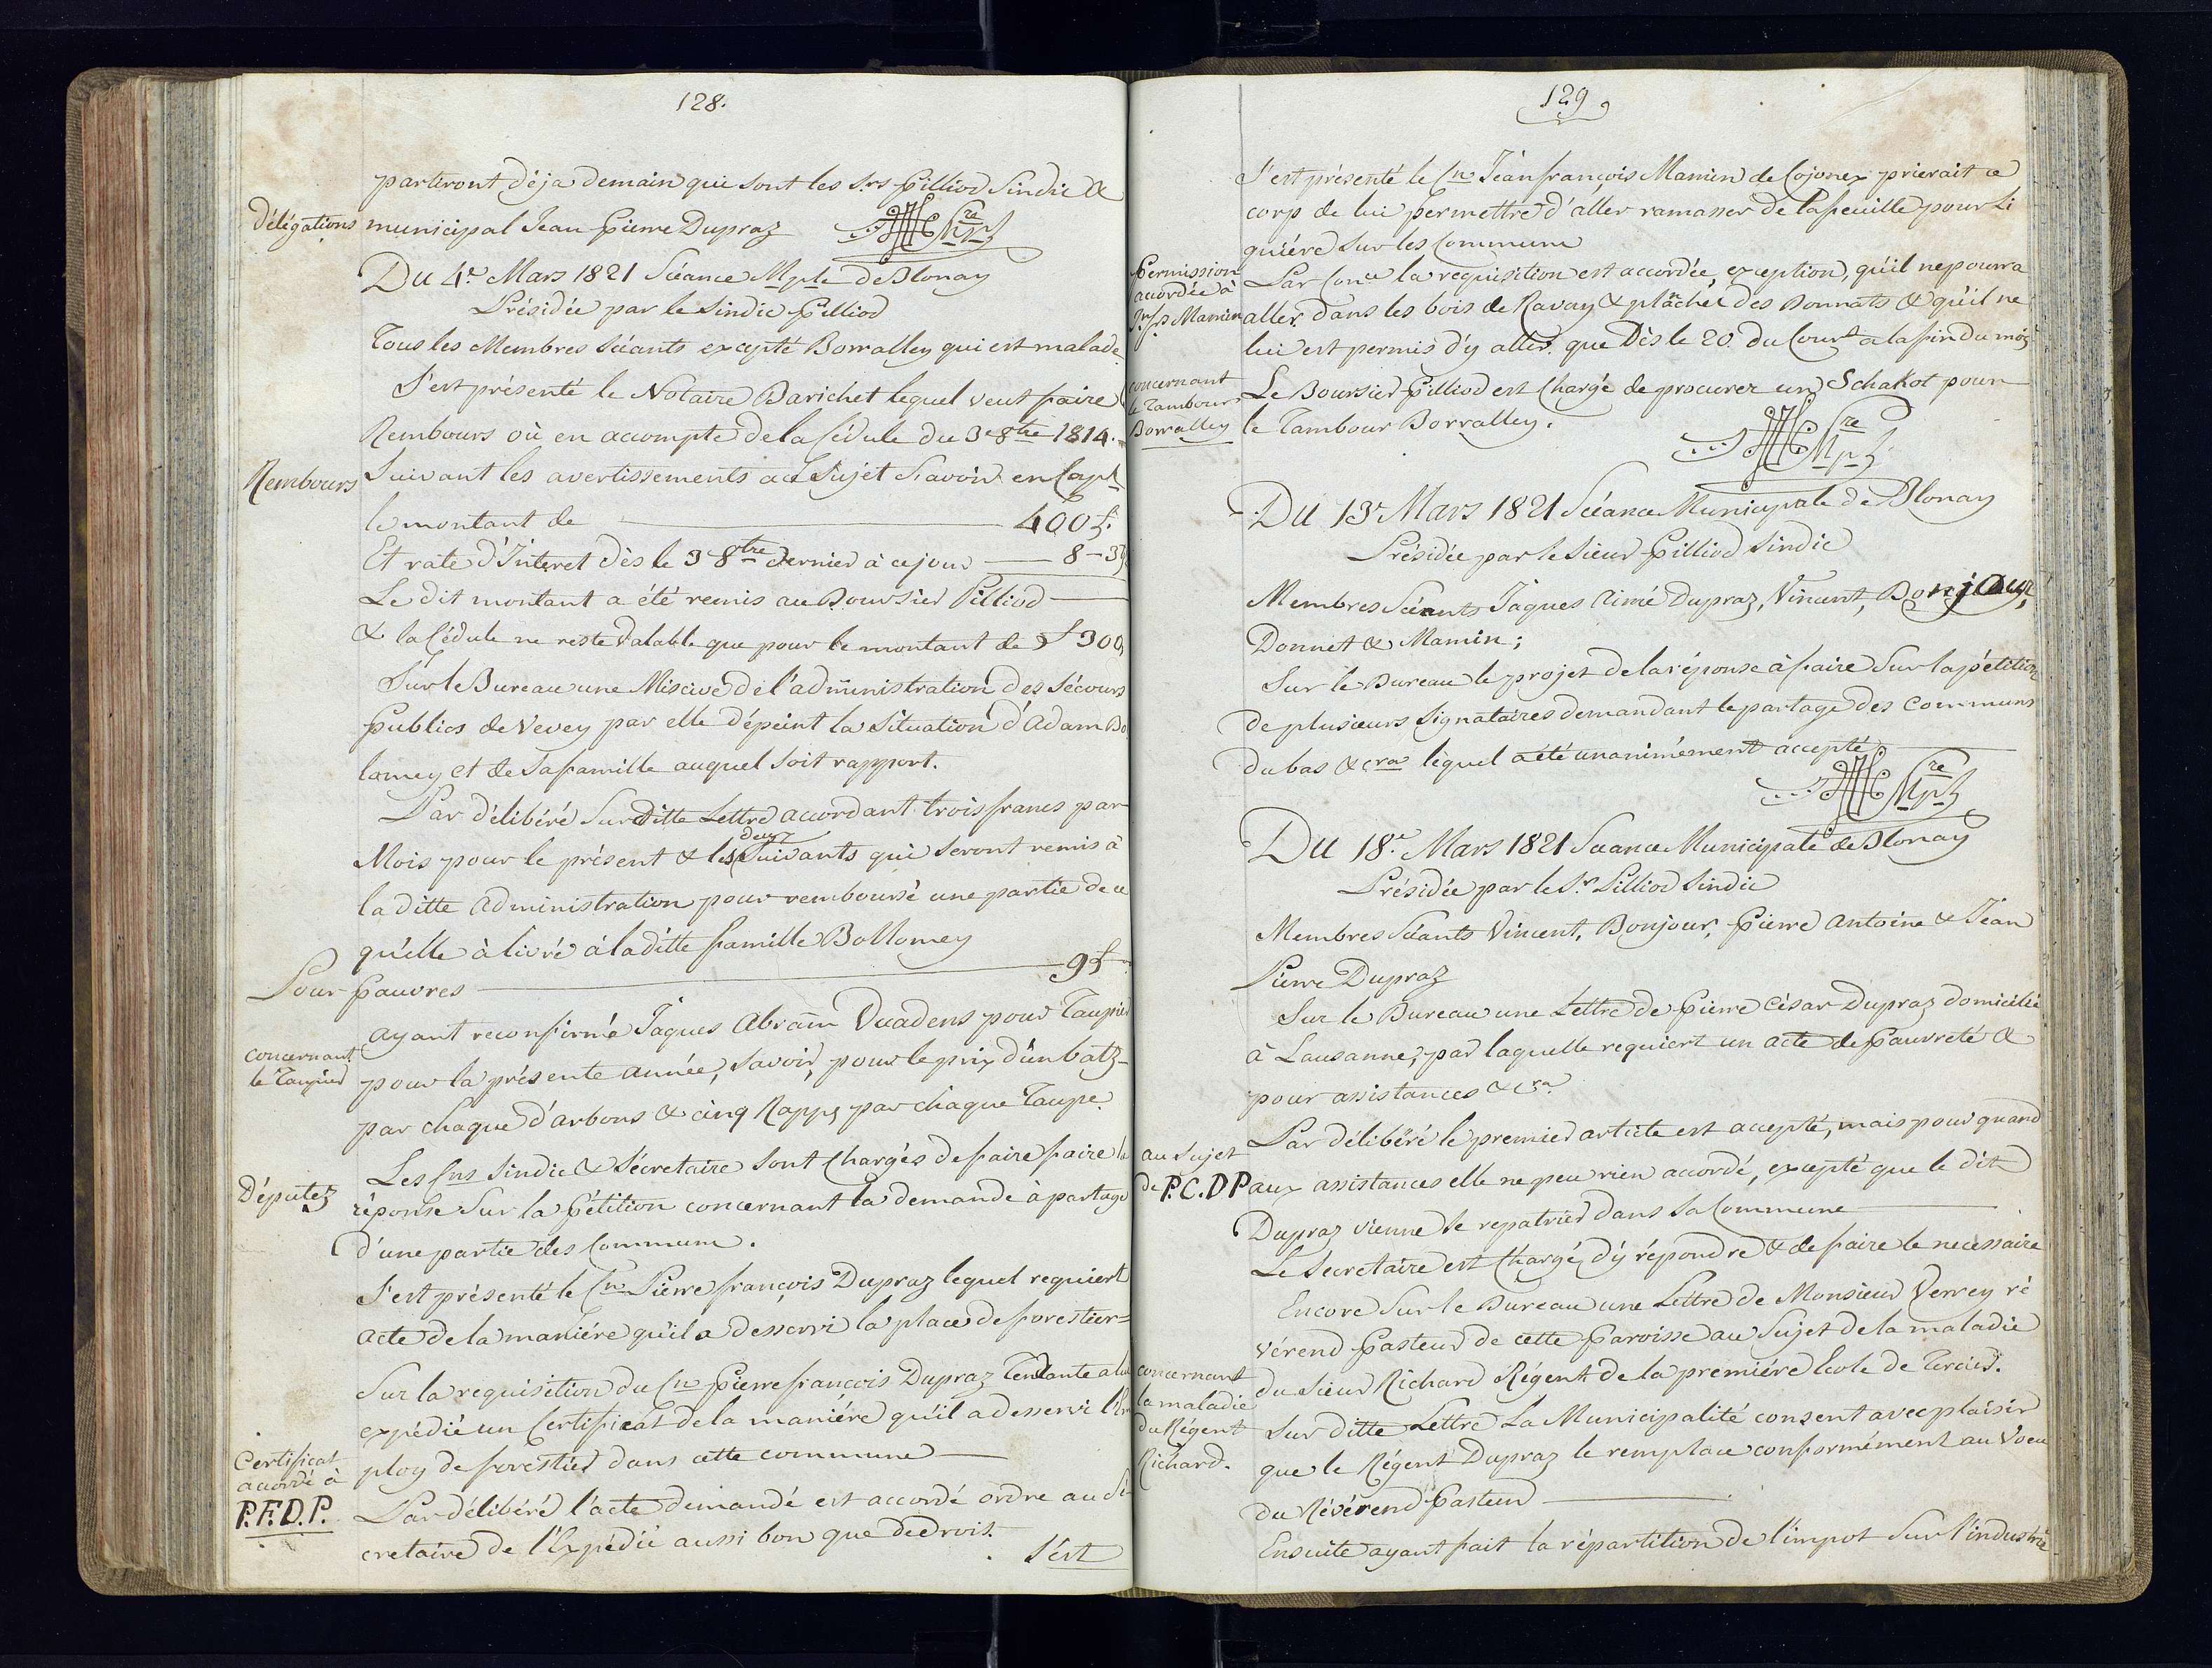 128.
parteront déja demain qui sont les S.rs Pilliod Sindic &
Délégations
municipal Jean Pierre Dupraz
Du 4.e Mars 1821 Séance Mple de Blonay
Présidée par le Sindic Pilliod
Tous les Membres séants excepté Borralley qui est malade
S'est présenté le Notaire Barichet lequel veut faire
Rembours où en accompte de la Cédule du 3 8tre 1814.
Rembours
Suivant les avertissements au Sujet Savoir en Capl
le montant de 400 f.
Et rate d'Interet dès le 3 8tre dernier à ce jour 8-3
Le dit montant a été remis au Boursier Pilliod
& la Cédule ne reste valable que pour le montant de f 300
Sur le Bureau une Miscive de l'administration des Sécours
Publics de Vevey par elle dépeint la Situation d'Adam Bo
lomey et de Sa famille auquel soit rapport.
Par délibéré Sur ditte Lettre accordant trois francs par
Mois pour le présent & les deux Suivants qui seront remis à
la ditte Administration pour remboursé une partie de ce
qu'elle à livré à la ditte famille Bollomey
Pour Pauvres 9 f
ayant reconfirmé Jaques Abram Ducdens pour Taupier
concernant
le Taupier
pour la présente année, Savoir, pour le prix d'un batz
par chaque d'arbons & cinq Rapps par chaque Taupe.
Les Cns Sindic & Sécretaire sont chargés de faire faire la
Députez
réponse Sur la Pétition concernant la demande à partage
d'une partie des Commun.
S'est présenté le Cn Pierre françois Dupraz lequel requiert
acte de la maniére qu'il a desservi la place de forestier=
Sur la requisition du Cn Pierre francois Dupraz Tendante a lui
expédié un Certificat de la maniére qu'il a desservi l'Em
ploy de forestier dans cette commune
Certificat
accordé à
P.F.D.P.
Par délibéré l'acte demandé est accordé ordre au Sé
cretaire de l'Expédié aussi bon que de droit.
S'est
129
S'est présenté le Cn Jean françois Mamin de Cojonex prierait ce
corp de lui permettre d'aller ramasser de la feuille pour Li
quiére sur les Commun
Permission
accordée à
Jn frs Mamin
Par Conce la requisition est accordée, exception, qu'il ne pourra
aller dans les bois de Ravay & planchet des Bonnats & qu'il ne
lui est permis d'y aller que Dès le 20 du Court a la fin du mois
concernant
le Tambour
Borralley
Le Boursier Pilliod est Chargé de procurer un Schakot pour
le Tambour Borralley.
Du 13e Mars 1821 Séance Municipale de Blonay
Présidée par le Sieur Pilliod Sindic
Membres Séants Jaques Aimé Dupraz, Vincent, Bonjour,
Donnet & Mamin;
Sur le Bureau le projet de la réponse à faire Sur la pétition
de plusieurs Signataires demandant le partage des Communs
du bas &cra léquel a été unanimément accepté
Du 18.e Mars 1821 Séance Municipale de Blonay
Présidée par le S.r Pilliod Sindic
Membres Séants Vincent, Bonjour, Pierre Antoine & Jean
Pierre Dupraz
Sur le Bureau une Lettre de Pierre César Dupraz domicilié
à Lausanne, par laquelle requiert un acte de Pauvreté &
pour assistances &c.ra
Par délibéré le premier article est accepté, mais pour quand
au Sujet
de P.C.D P
aux assistances elle ne peu rien accordé, excepté que le dit
Dupraz vienne se repatrier dans Sa Commune
Le Sécretaire est Chargé d'y répondre & de faire le necessaire
Encore Sur le Bureau une Lettre de Monsieur Verrey ré
vérend Pasteur de cette Paroisse au Sujet de la maladie
concernant
la maladie
du Régent
Richard.
du Sieur Richard Régent de la premiére Ecole de Tercier.
Sur ditte Lettre La Municipalité consent avec plaisir
que le Régent Dupraz le remplace conformément au Voeu
du Révérend Pasteur
Ensuite ayant fait la répartition de l'impot Sur l'industrie